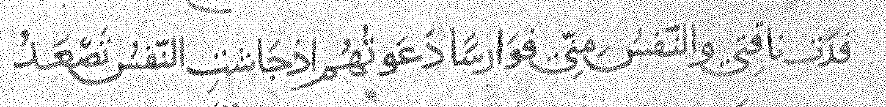 فَدَت نَاقَتِي وَالنَّفْسُ مِنِّي فَوَارِسًا دَعَوتُهُم اذجَاشَتِ النَّفسُ تَصْعَدُ